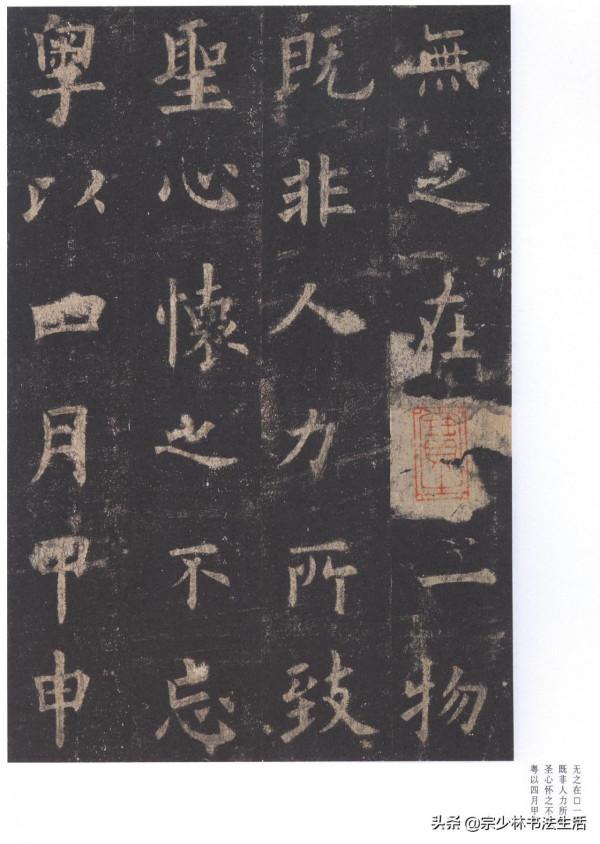 無之在一物
既非人力所致
聖心懷之不忘
粵以四月甲申
无之在口一
既非人力所
圣心怀之不
粤以四月甲
头条 @宗少林书法生活